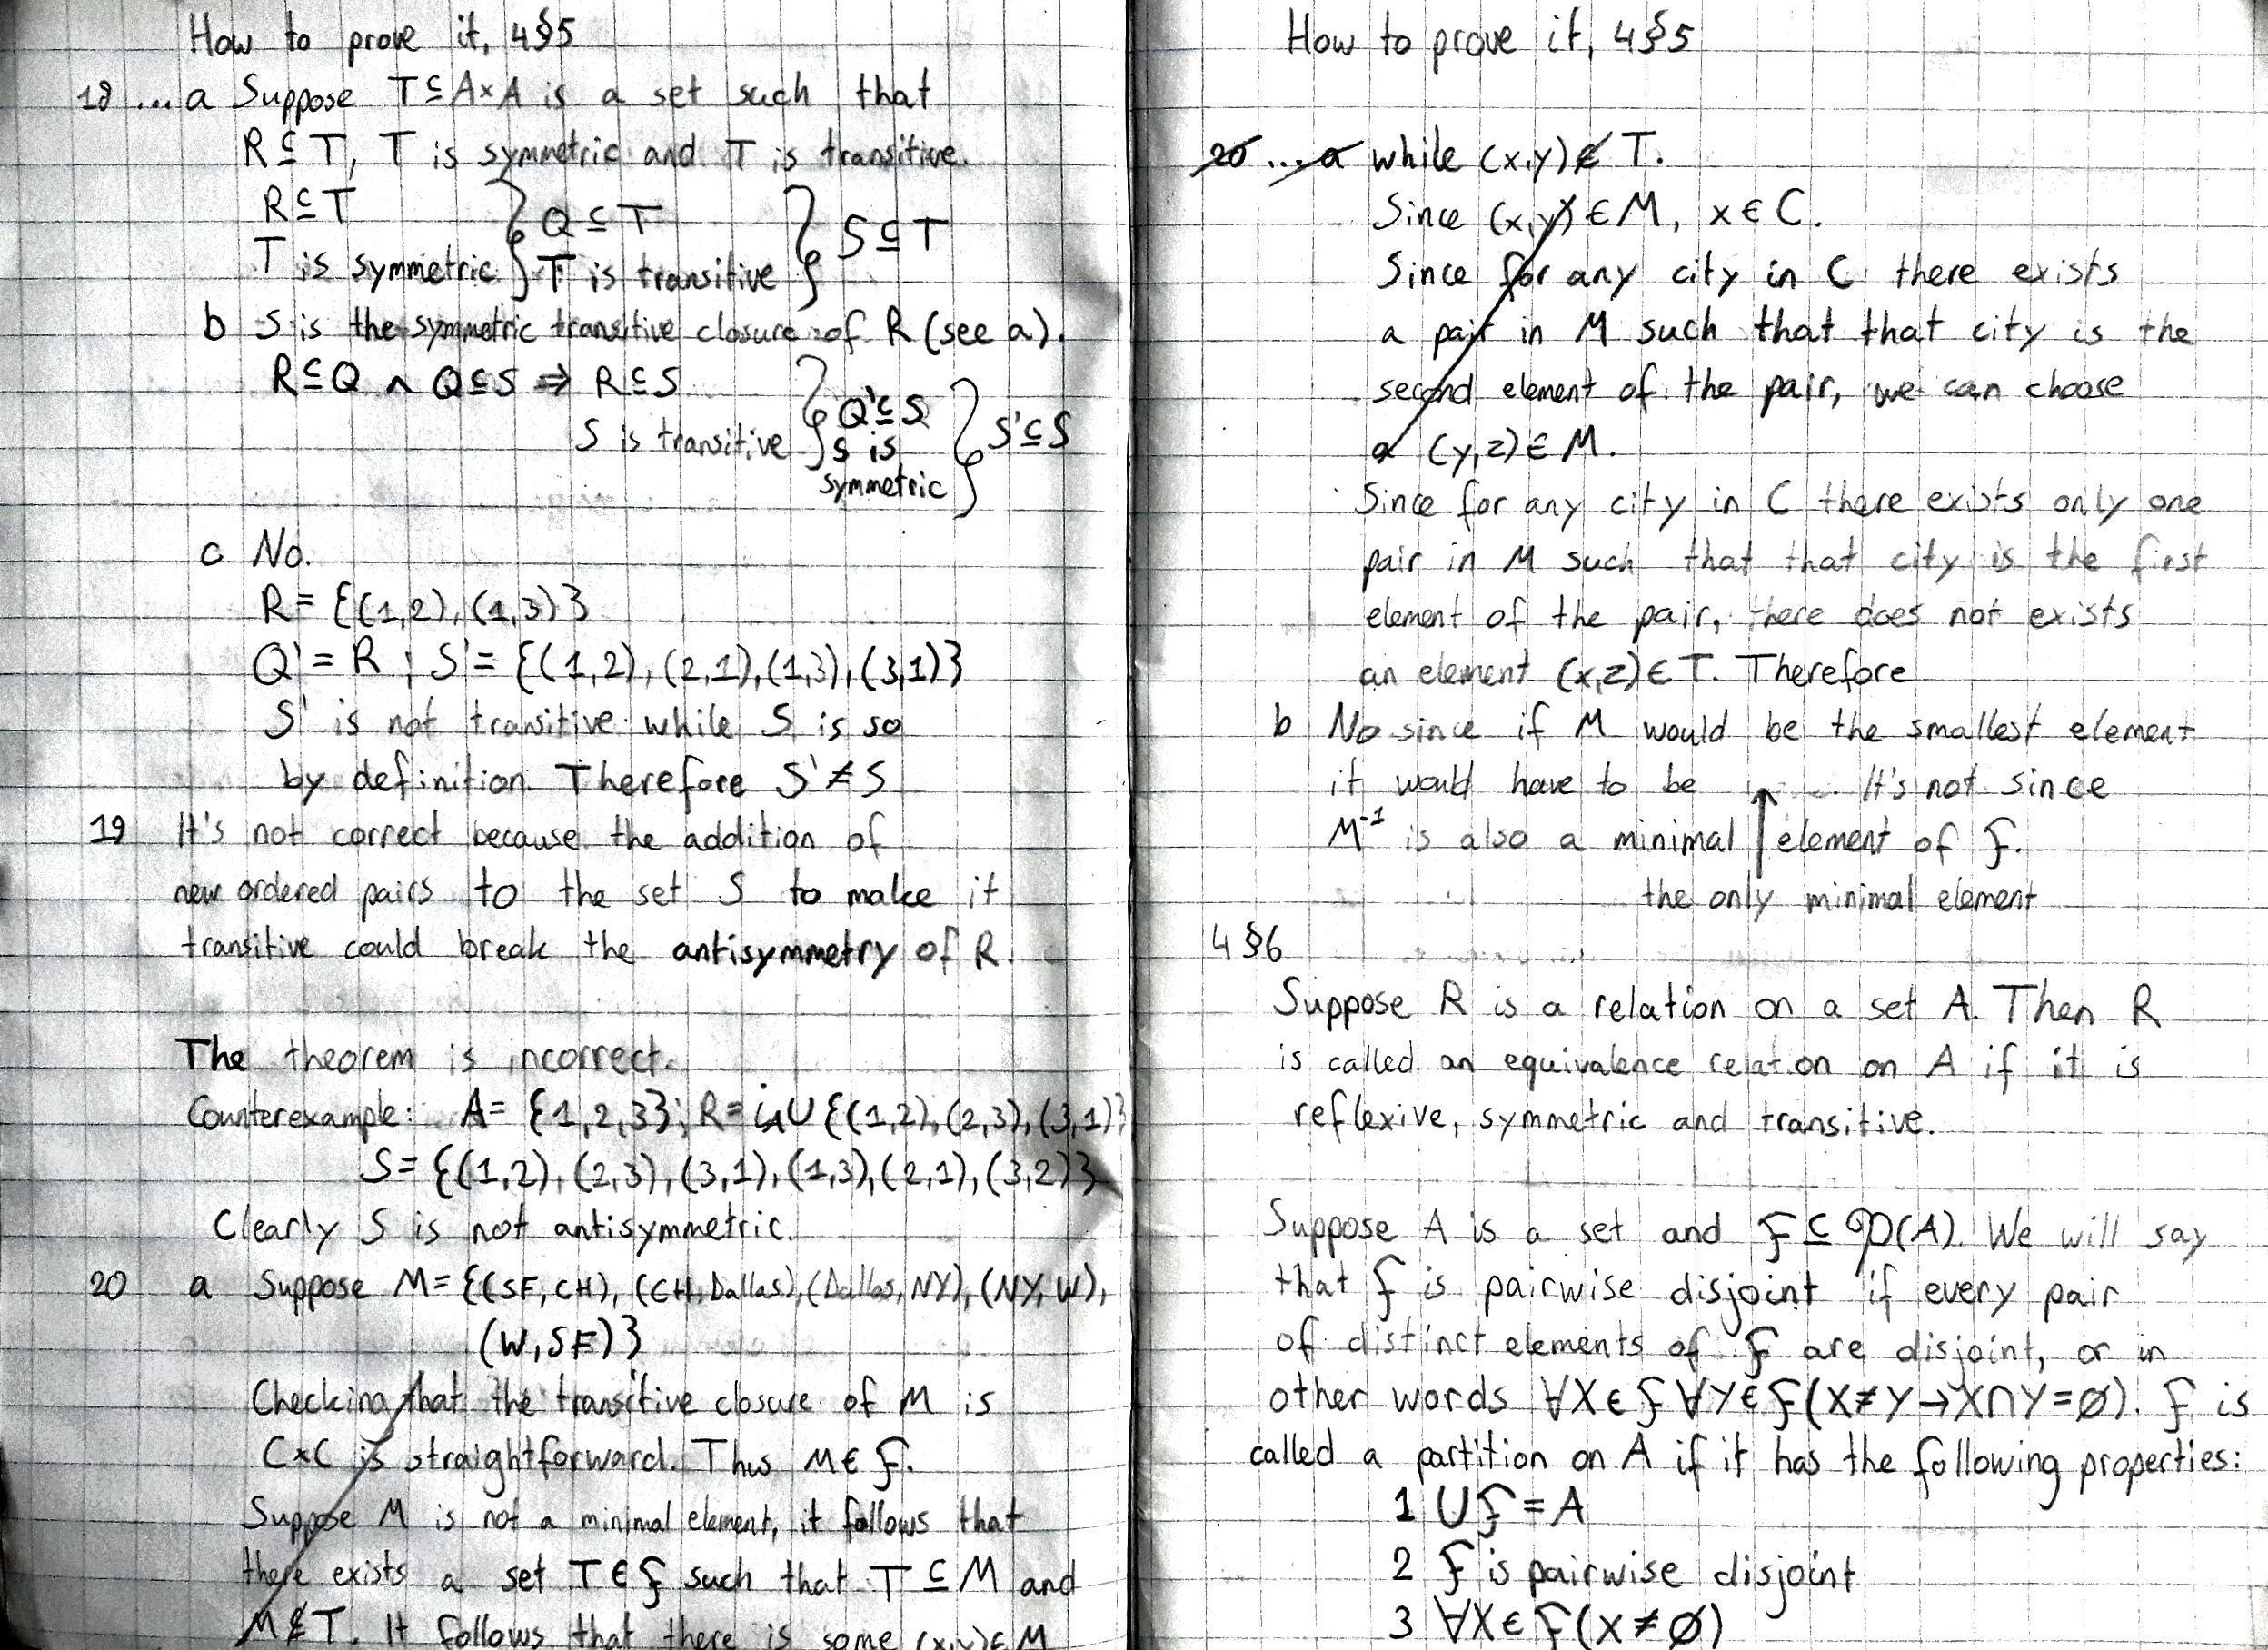 How to prove it, 4§5
18 ... a Suppose T⊆A×A is a set such that
R⊆T, T is symmetric and T is transitive.
R⊆T
Q⊆T
S⊆T
T is symmetric T is transitive
b S is the symmetric transitive closure of R (see a).
R⊆Q ∧ Q⊆S ⇒ R⊆S
Q'⊆S
S is transitive S is S'⊆S
symmetric
c No.
R= {(1,2), (1,3)}
Q'= R ; S'= {(1,2), (2,1), (1,3), (3,1)}
S' is not transitive while S is so
by definition. Therefore S'≠S
19 It's not correct because the addition of
new ordered pairs to the set S to make it
transitive could break the antisymmetry of R.
The theorem is incorrect.
Counterexample: A= {1,2,3}; R= i_A∪{(1,2), (2,3), (3,1)}
S= {(1,2), (2,3), (3,1), (1,3), (2,1), (3,2)}
Clearly S is not antisymmetric.
20 a Suppose M= {(SF, CH), (CH, Dallas), (Dallas, NY), (NY, W),
(W, SF)}
Checking that the transitive closure of M is
C×C is straightforward. Thus M∈F.
Suppose M is not a minimal element, it follows that
there exists a set T∈F such that T⊆M and
M⊈T. It follows that there is some (x,y)∈M
How to prove it, 4§5
20 ... a while (x,y)∉T.
Since (x,y)∈M, x∈C.
Since for any city in C there exists
a pair in M such that that city is the
second element of the pair, we can choose
a (y,z)∈M.
Since for any city in C there exists only one
pair in M such that that city is the first
element of the pair, there does not exists
an element (x,z)∈T. Therefore
b No since if M would be the smallest element
it would have to be ↑ It's not since
M⁻¹ is also a minimal element of F.
the only minimal element
4§6
Suppose R is a relation on a set A. Then R
is called an equivalence relation on A if it is
reflexive, symmetric and transitive.
Suppose A is a set and F⊆𝒫(A). We will say
that F is pairwise disjoint if every pair
of distinct elements of F are disjoint, or in
other words ∀X∈F ∀Y∈F(X≠Y→X∩Y=∅). F is
called a partition on A if it has the following properties:
1 ∪F=A
2 F is pairwise disjoint
3 ∀X∈F(X≠∅)